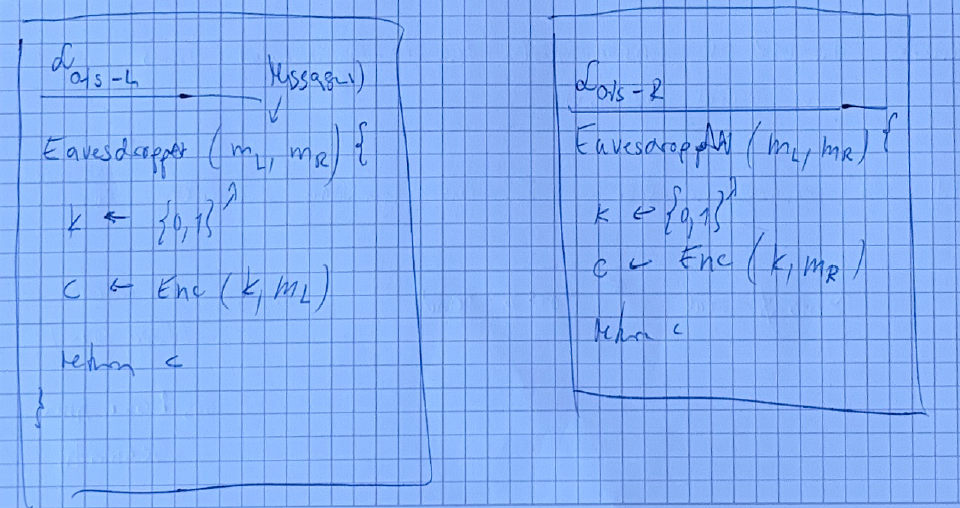 L ots-L Message(s)
Eavesdropper (m_L, m_R) {
k ← {0,1}^λ
c ← Enc (k, m_L)
return c
}
L ots-R
Eavesdropper (m_L, m_R) {
k ← {0,1}^λ
c ← Enc (k, m_R)
return c